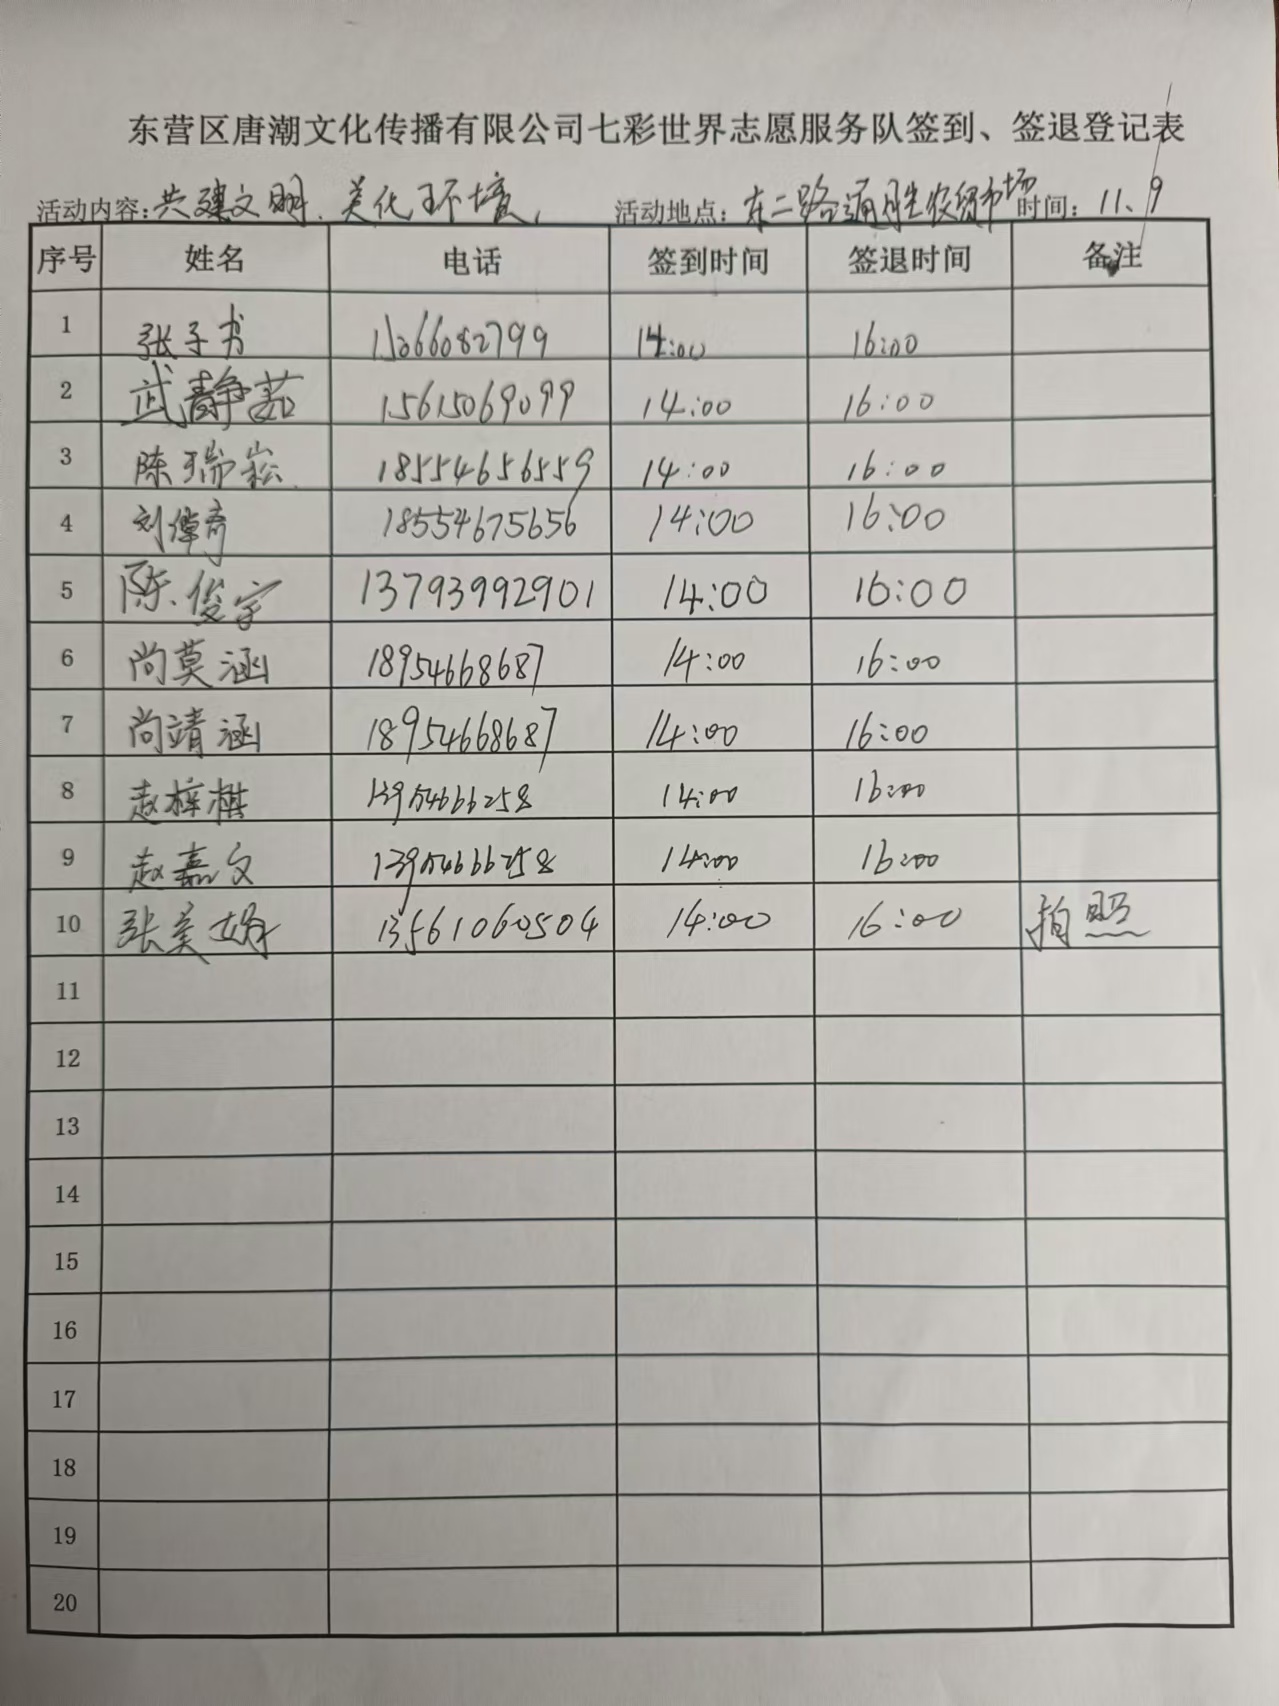 东营区唐潮文化传播有限公司七彩世界志愿服务队签到、签退登记表
活动内容：共建文明、美化环境, 活动地点：东二路通胜农贸市场 时间：11、9
序号 姓名 电话 签到时间 签退时间 备注
1 张子书 14:00 16:00
2 武静茹 15615069099 14:00 16:00
3 陈瑞崧 18554656559 14:00 16:00
4 刘倬奇 18554675656 14:00 16:00
5 陈俊宇 13793992901 14:00 16:00
6 尚莫涵 18954668687 14:00 16:00
7 尚靖涵 18954668687 14:00 16:00
8 赵梓棋 13954666258 14:00 16:00
9 赵嘉文 13954666258 14:00 16:00
10 张美婷 13561060504 14:00 16:00 拍照
11
12
13
14
15
16
17
18
19
20